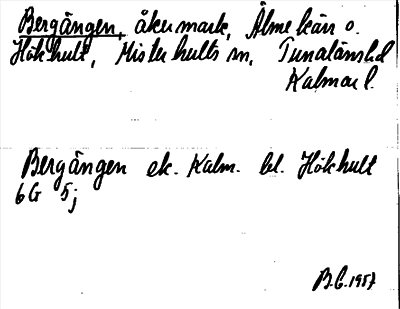 Bergängen, åkermark, Älmekärr o.
Hökhult, Misterhults sn, Tunaläns hd
Kalmar l.
Bergängen ek. Kalm. bl. Hökhult
6G 5j
B.G. 1957